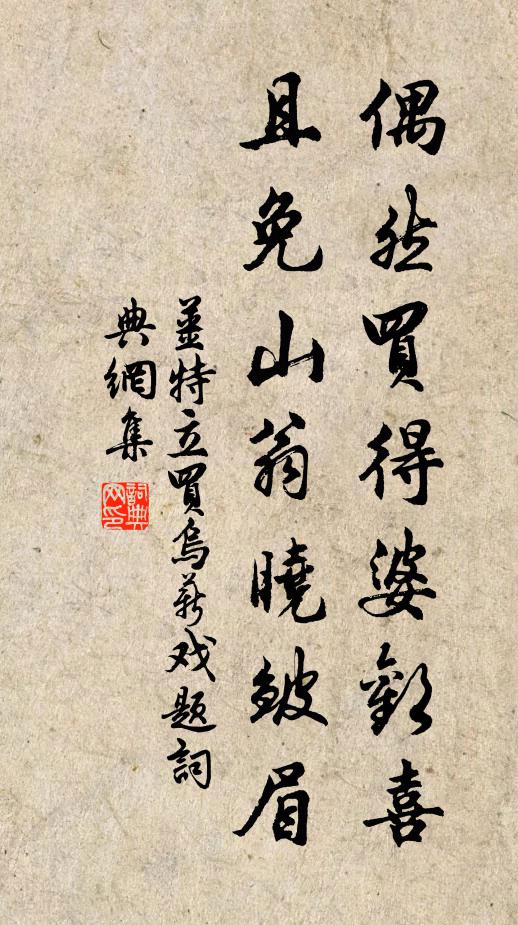 偶然買得婆歡喜
且免山翁曉皺眉
姜特立買烏薪戏題詞
典網集
詞典网印